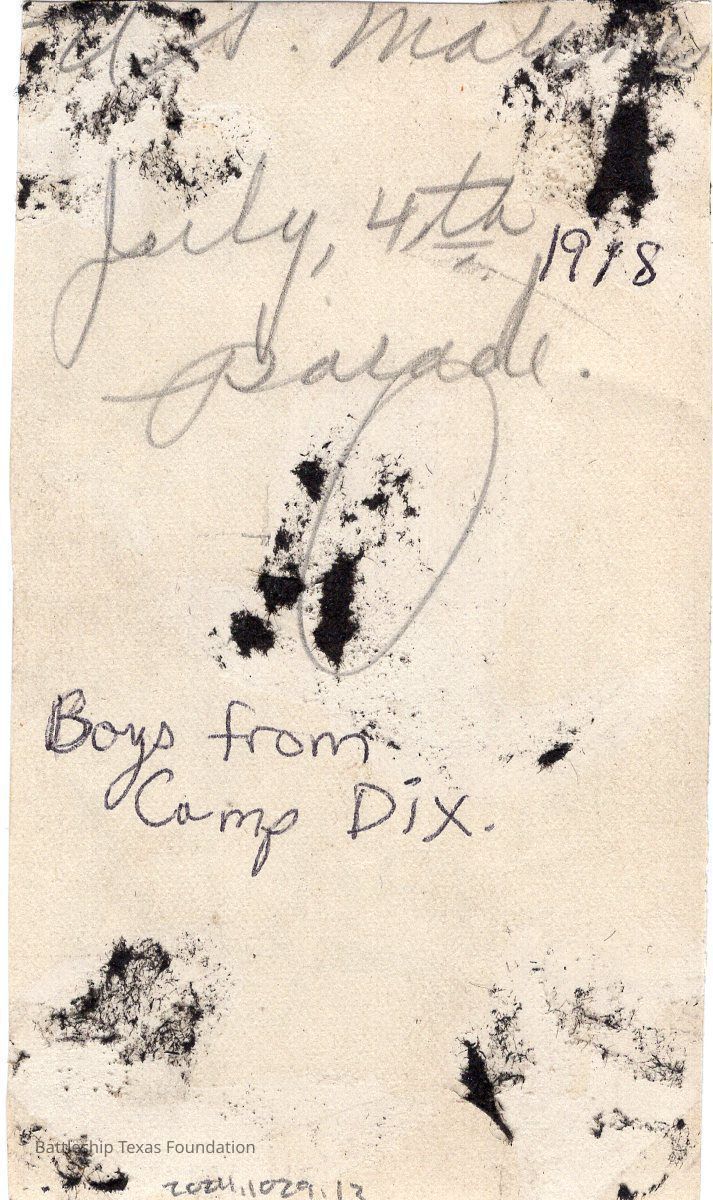 U.S. Marines
July, 4th 1918
parade.
Boys from
Camp Dix.
Battleship Texas Foundation
2024.1029.12